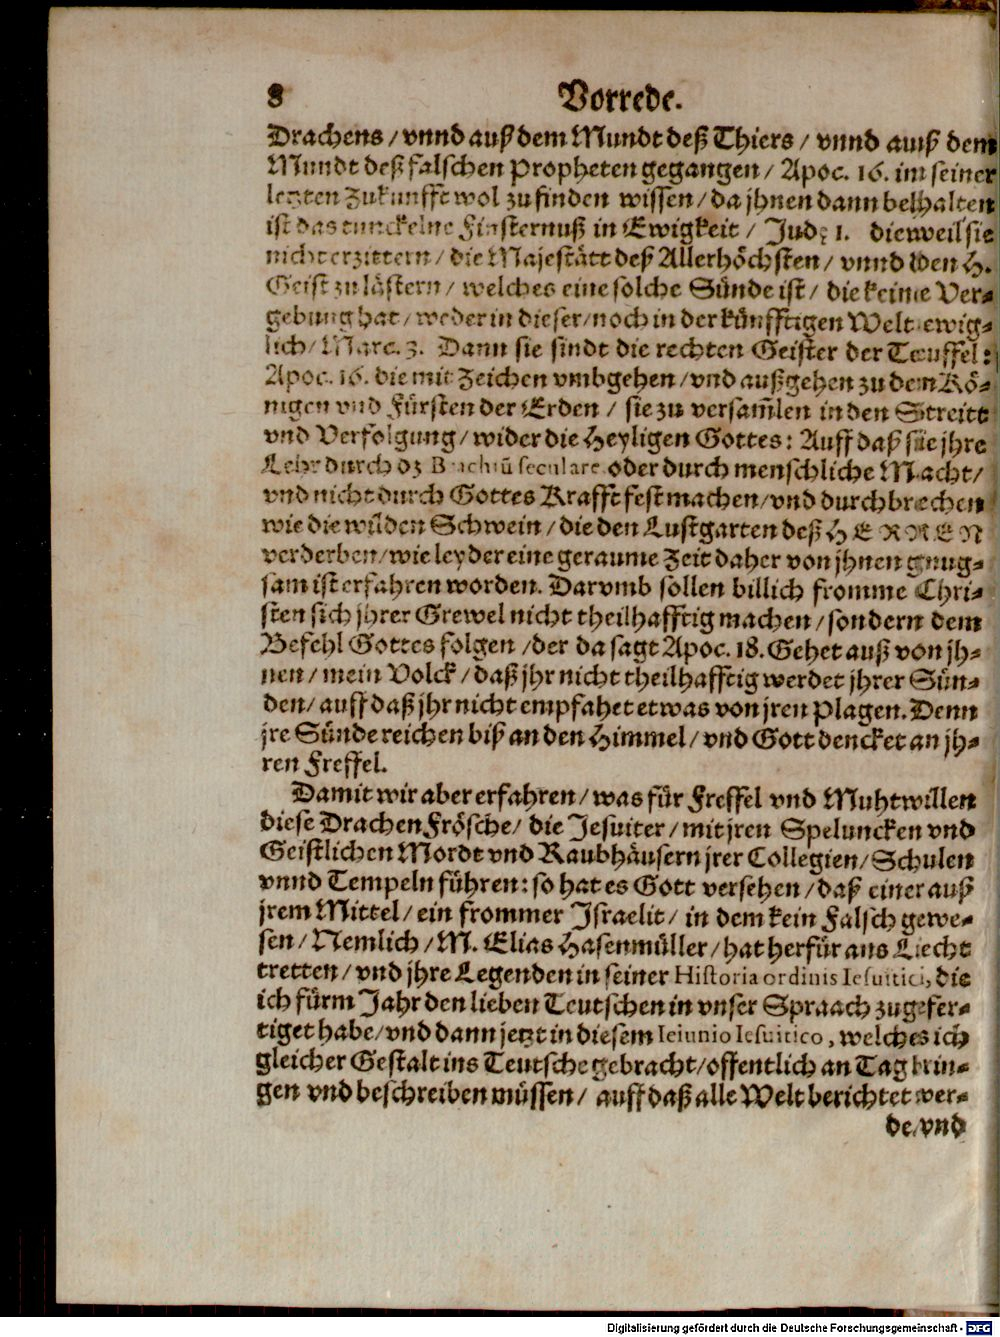 8 Vorrede.
Drachens / vnnd auß dem Mundt deß Thiers / vnnd auß dem
Mundt deß falschen Propheten gegangen / Apoc. 16. in seiner
letzten Zukunfft wol zu finden wissen / da jhnen dann behalten
ist das tunckelne Finsternuß in Ewigkeit / Judę 1. dieweil sie
nicht erzittern / die Majestätt deß Allerhöchsten / vnnd den H.
Geist zu lästern / welches eine solche Sünde ist / die keine Ver-
gebung hat / weder in dieser / noch in der künfftigen Welt ewig-
lich / Marc. 3. Dann sie sindt die rechten Geister der Teuffel:
Apoc. 16. die mit Zeichen vmbgehen / vnd außgehen zu den Kö-
nigen vnd Fürsten der Erden / sie zu versam̃len in den Streitt
vnd Verfolgung / wider die Heyligen Gottes: Auff daß sie jhre
Lehr durch dz Brachiū seculare oder durch menschliche Macht /
vnd nicht durch Gottes Krafft fest machen / vnd durchbrechen
wie die wilden Schwein / die den Lustgarten deß HERREN
verderben / wie leyder eine geraume Zeit daher von jhnen gnug-
sam ist erfahren worden. Darvmb sollen billich fromme Chri-
sten sich jhrer Grewel nicht theilhafftig machen / sondern dem
Befehl Gottes folgen / der da sagt Apoc. 18. Gehet auß von jh-
nen / mein Volck / daß jhr nicht theilhafftig werdet jhrer Sün-
den / auff daß jhr nicht empfahet etwas von jren Plagen. Denn
jre Sünde reichen biß an den Himmel / vnd Gott dencket an jh-
ren Freffel.
Damit wir aber erfahren / was für Freffel vnd Muhtwillen
diese Drachen Frösche / die Jesuiter / mit jren Speluncken vnd
Geistlichen Mordt vnd Raubhäusern jrer Collegien / Schulen
vnnd Tempeln führen: so hat es Gott versehen / daß einer auß
jrem Mittel / ein frommer Israelit / in dem kein Falsch gewe-
sen / Nemlich / M. Elias Hasenmüller / hat herfür ans Liecht
tretten / vnd jhre Legenden in seiner Historia ordinis Iesuitici, die
ich fürm Jahr den lieben Teutschen in vnser Spraach zugefer-
tiget habe / vnd dann jetzt in diesem Ieiunio Iesuitico, welches ich
gleicher Gestalt ins Teutsche gebracht / offentlich an Tag brin-
gen vnd beschreiben müssen / auff daß alle Welt berichtet wer-
de / vnd
Digitalisierung gefördert durch die Deutsche Forschungsgemeinschaft - DFG